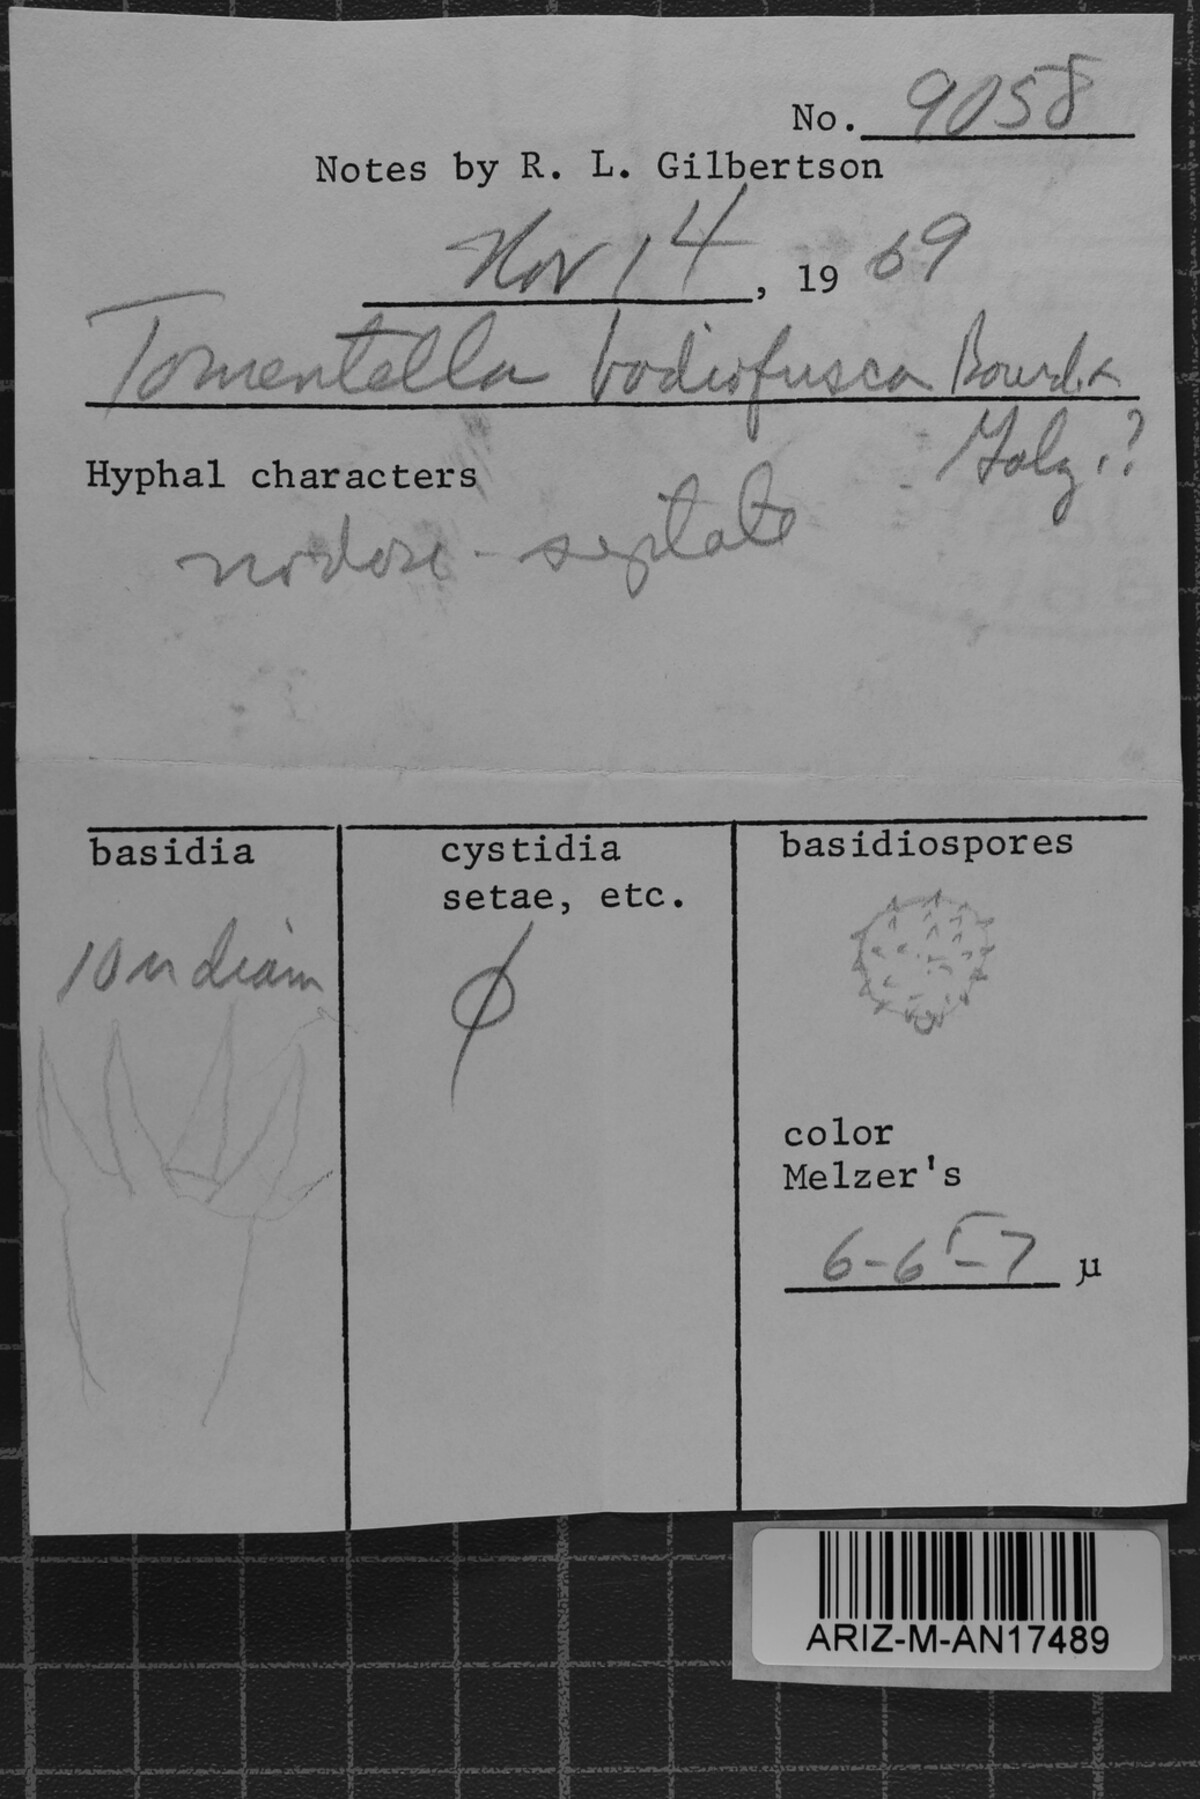 No. 9058
Notes by R. L. Gilbertson
Nov 14, 19 69
Tomentella badiofusca Bourd. &
Galz.?
Hyphal characters
nodose-septate
basidia
cystidia
setae, etc.
basidiospores
10 u diam
Ø
color
Melzer's
6-6.5-7 µ
ARIZ-M-AN17489